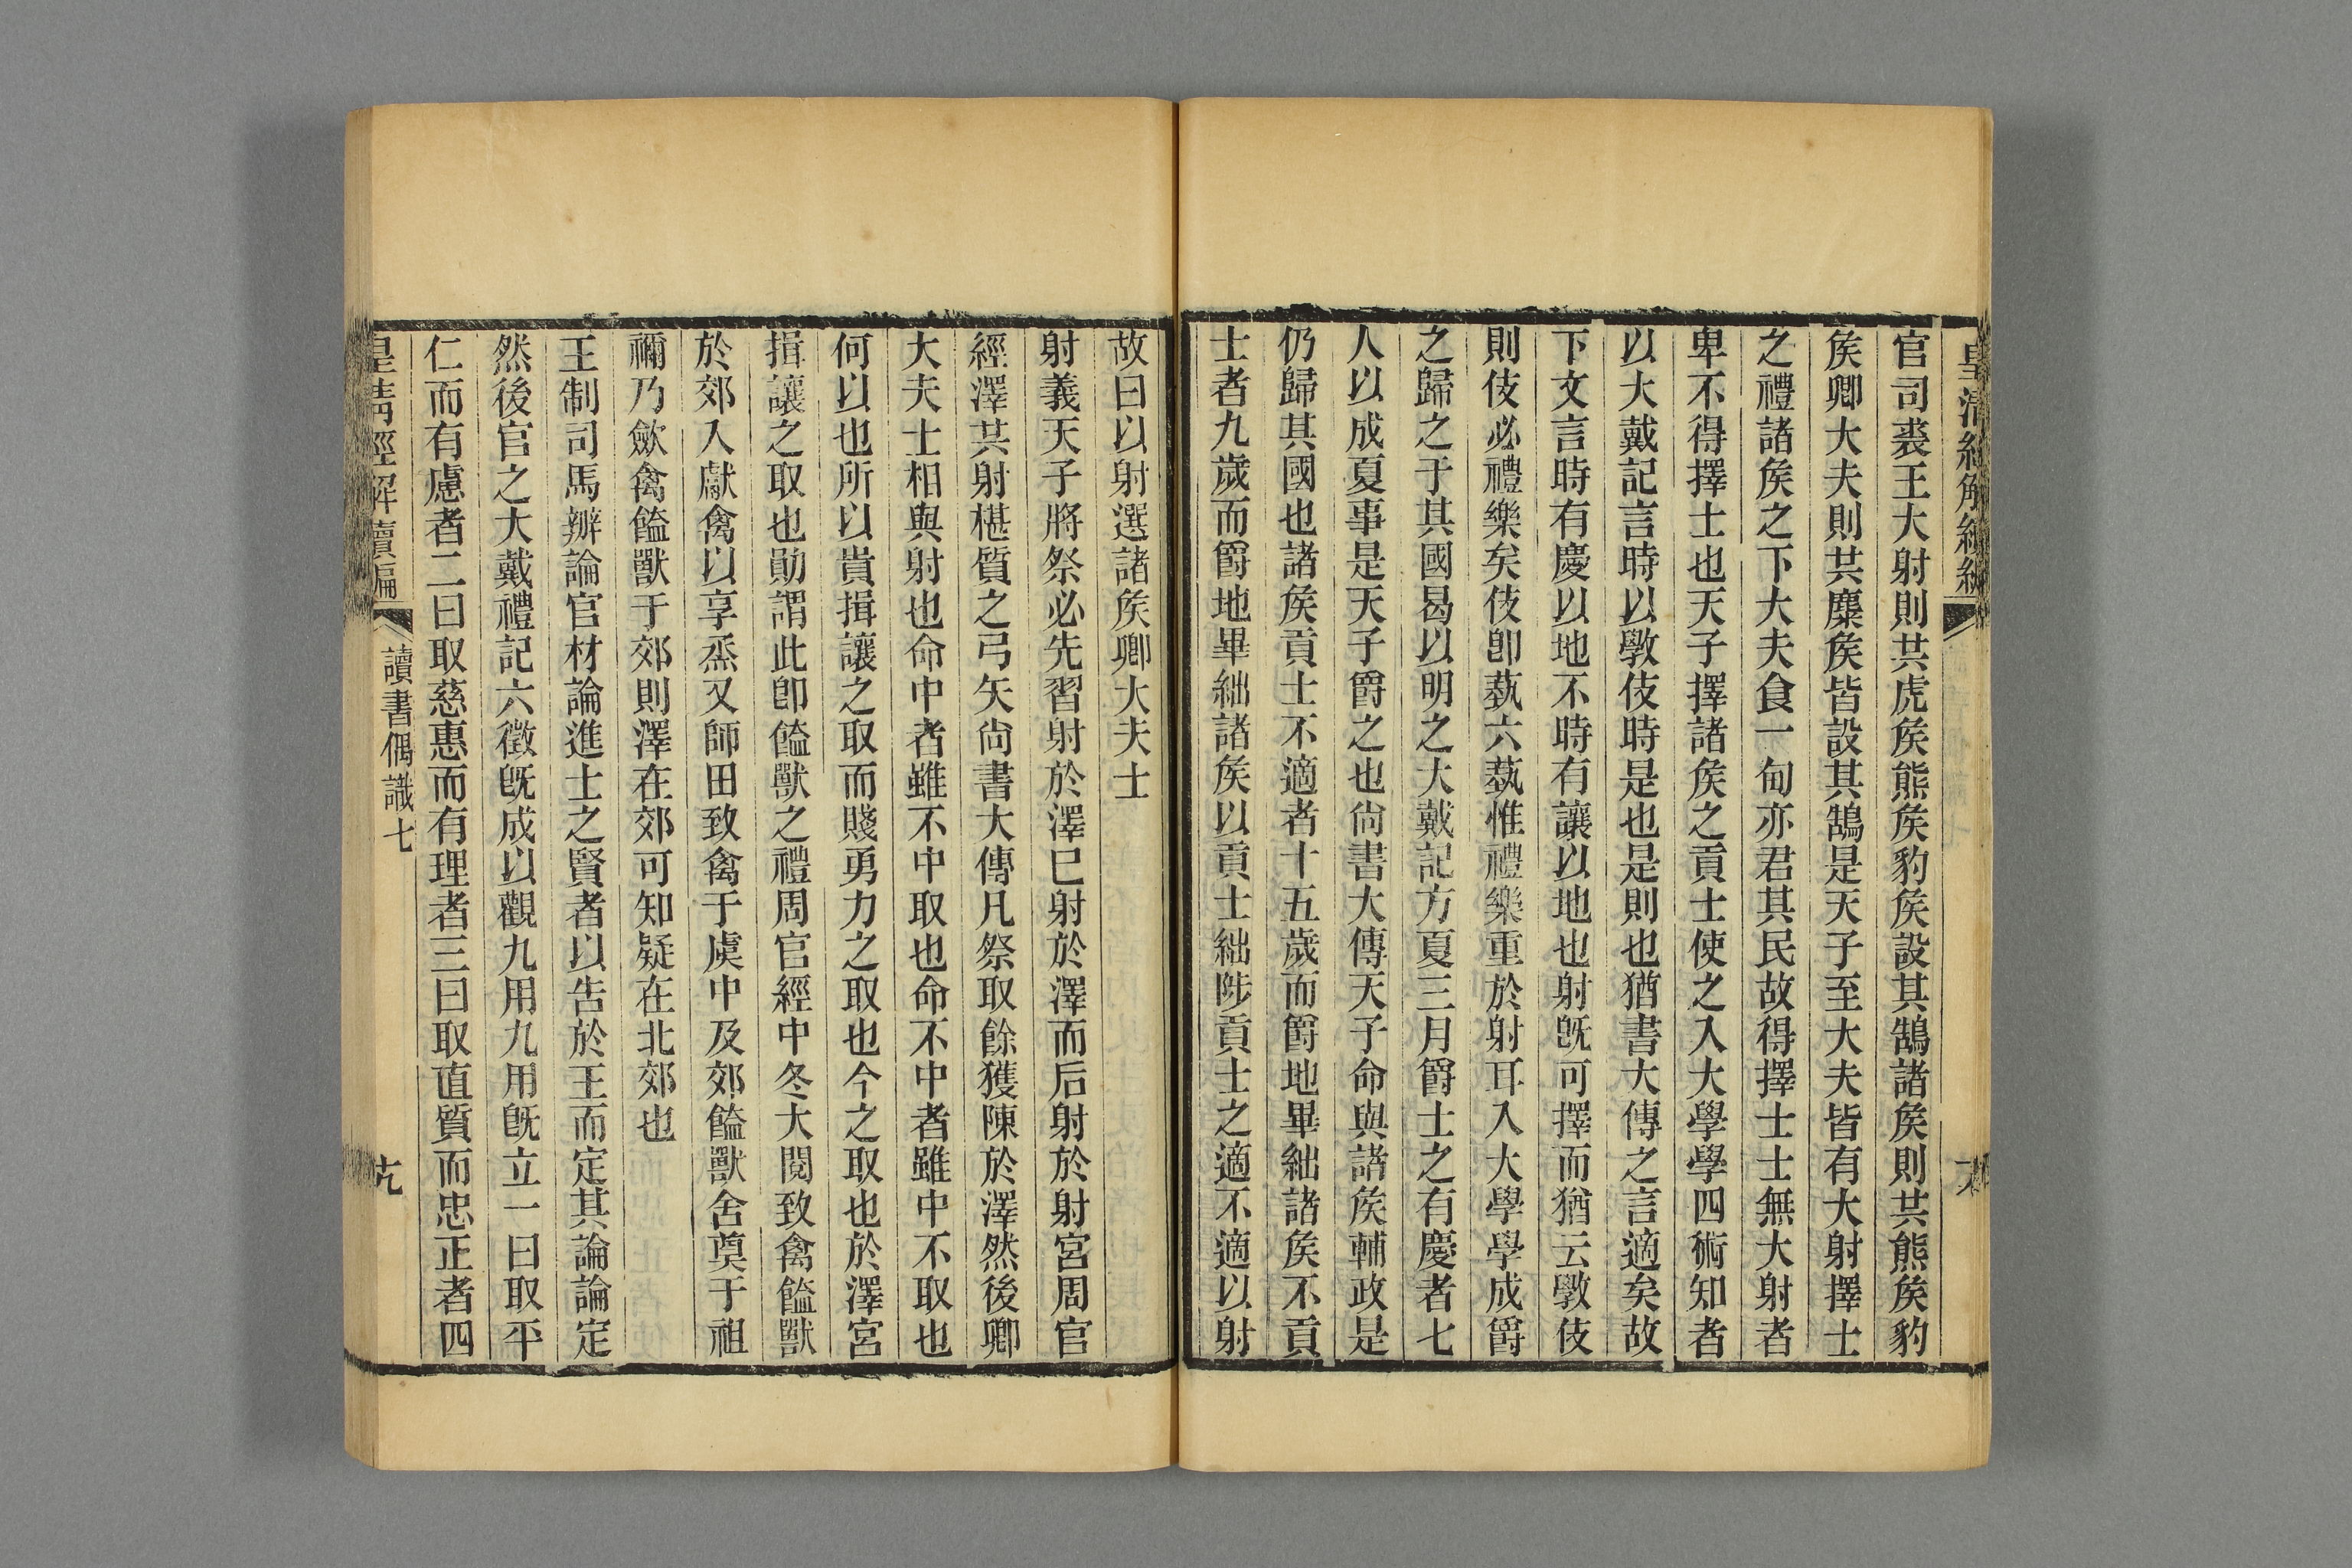 皇清經解續編
官司裘王大射則共虎矦熊矦豹矦設其鵠諸矦則共熊矦豹
矦卿大夫則共麋矦皆設其鵠是天子至大夫皆有大射擇士
之禮諸矦之下大夫食一甸亦君其民故得擇士士無大射者
卑不得擇士也天子擇諸矦之貢士使之入大學學四術知者
以大戴記言時以斆伎時是也是則也猶書大傳之言適矣故
下文言時有慶以地不時有讓以地也射旣可擇而猶云斆伎
則伎必禮樂矣伎卽蓺六蓺惟禮樂重於射耳入大學學成爵
之歸之于其國曷以明之大戴記方夏三月爵士之有慶者七
人以成夏事是天子爵之也尙書大傳天子命與諸矦輔政是
仍歸其國也諸矦貢士不適者十五歲而爵地畢絀諸矦不貢
士者九歲而爵地畢絀諸矦以貢士絀陟貢士之適不適以射
故曰以射選諸矦卿大夫士
射義天子將祭必先習射於澤已射於澤而后射於射宮周官
經澤共射椹質之弓矢尙書大傳凡祭取餘獲陳於澤然後卿
大夫士相與射也命中者雖不中取也命不中者雖中不取也
何以也所以貴揖讓之取而賤勇力之取也今之取也於澤宮
揖讓之取也勛謂此卽饁獸之禮周官經中冬大閱致禽饁獸
於郊入獻禽以享烝又師田致禽于虞中及郊饁獸舍奠于祖
禰乃歛禽饁獸于郊則澤在郊可知疑在北郊也
王制司馬辨論官材論進士之賢者以告於王而定其論論定
然後官之大戴禮記六徵旣成以觀九用九用旣立一曰取平
仁而有慮者二曰取慈惠而有理者三曰取直質而忠正者四
皇淸經解續編
讀書偶識七